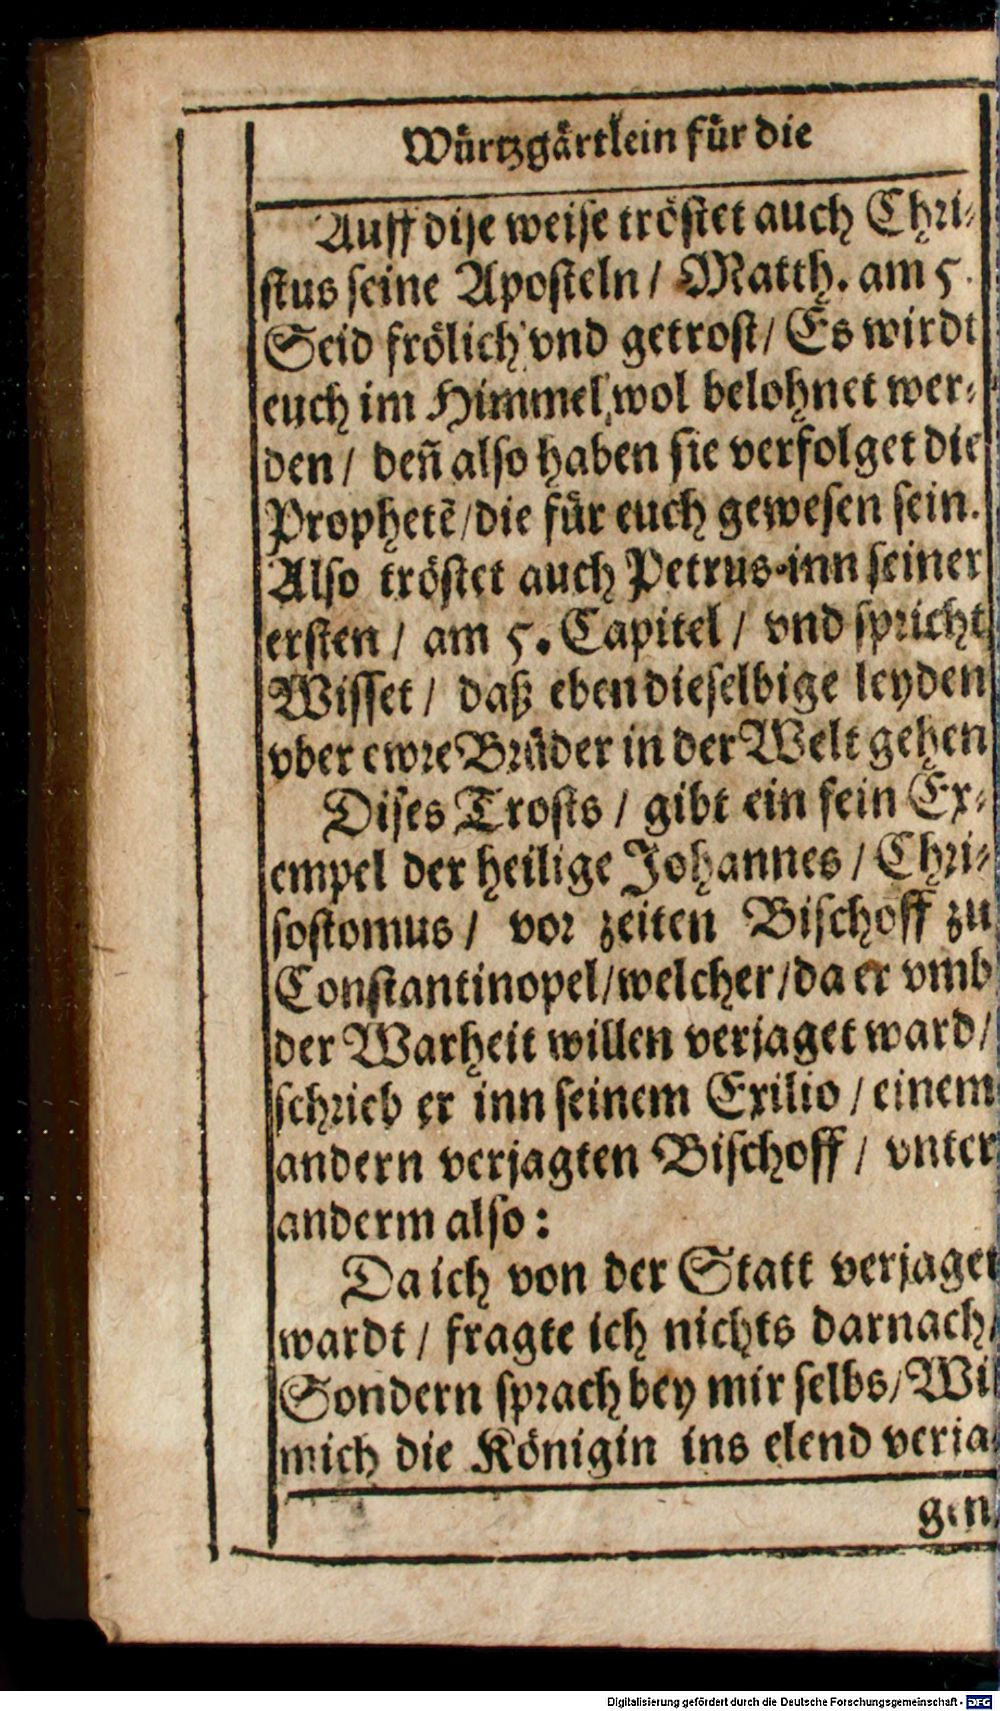 Würtzgärtlein für die
Auff dise weise tröstet auch Chri-
stus seine Aposteln / Matth. am 5.
Seid frölich vnd getrost / Es wirdt
euch im Himmel wol belohnet wer-
den / deñ also haben sie verfolget die
Prophetẽ / die für euch gewesen sein.
Also tröstet auch Petrus inn seiner
ersten / am 5. Capitel / vnd spricht
Wisset / daß eben dieselbige leyden
vber ewre Brüder in der Welt gehen
Dises Trosts / gibt ein fein Ex-
empel der heilige Johannes / Chri-
sostomus / vor zeiten Bischoff zu
Constantinopel / welcher / da er vmb
der Warheit willen verjaget ward /
schrieb er inn seinem Exilio / einem
andern verjagten Bischoff / vnter
anderm also :
Da ich von der Statt verjaget
wardt / fragte ich nichts darnach /
Sondern sprach bey mir selbs / Wi
mich die Königin ins elend verja-
gen
Digitalisierung gefördert durch die Deutsche Forschungsgemeinschaft - DFG